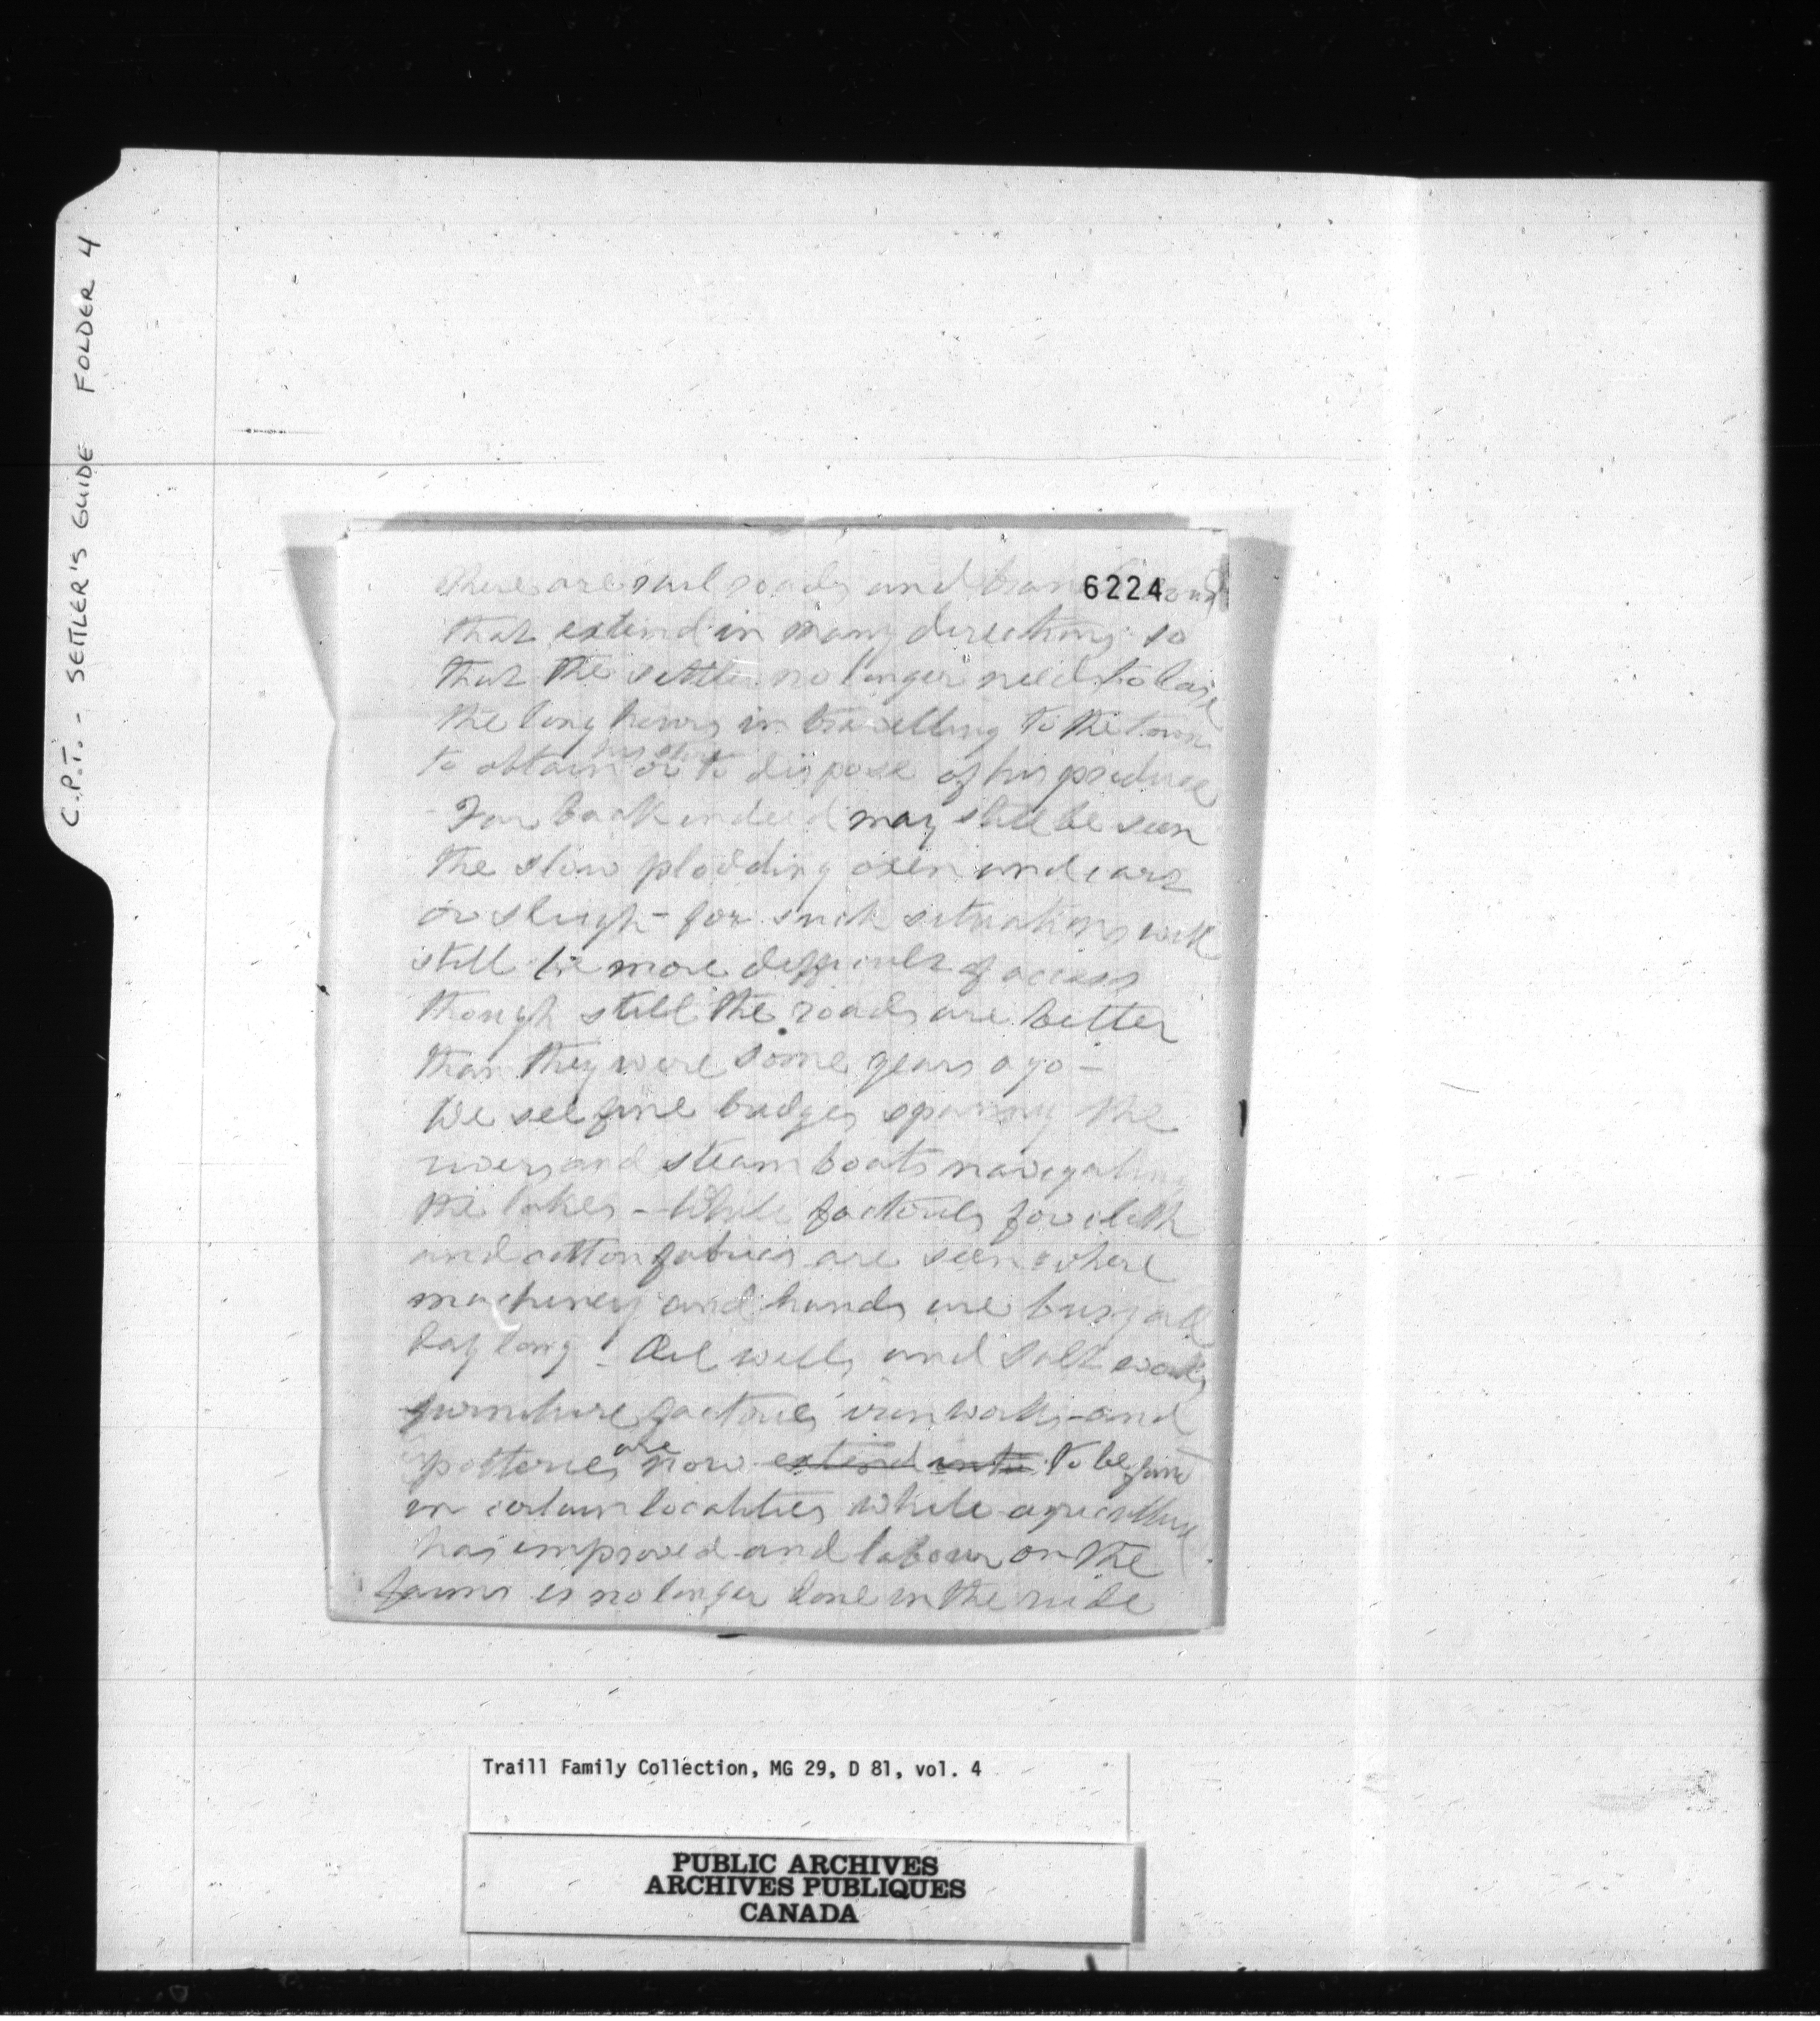 C.P.T. - SETTLER'S GUIDE FOLDER 4
6224
there are rail roads and
that extend in many directions so
that the settler no longer need to lose
the long hours in travelling to the town
to obtain or to dispose of his produce
Far back indeed may still be seen
the slow plodding oxen and cart
or sleigh - for such situations will
still be more difficult of access
though still the roads are better
than they were some years ago -
We see fine bridges spanning the
rivers and steam boats navigating
the lakes - While factories for cloth
and cotton fabrics are seen where
machinery and hands are busy all
day long - Oil wells and salt works
furniture factories iron works and
potteries are now extend into to be found
in certain localities while agriculture
has improved and labour on the
farms is no longer done in the rude
Traill Family Collection, MG 29, D 81, vol. 4
PUBLIC ARCHIVES
ARCHIVES PUBLIQUES
CANADA